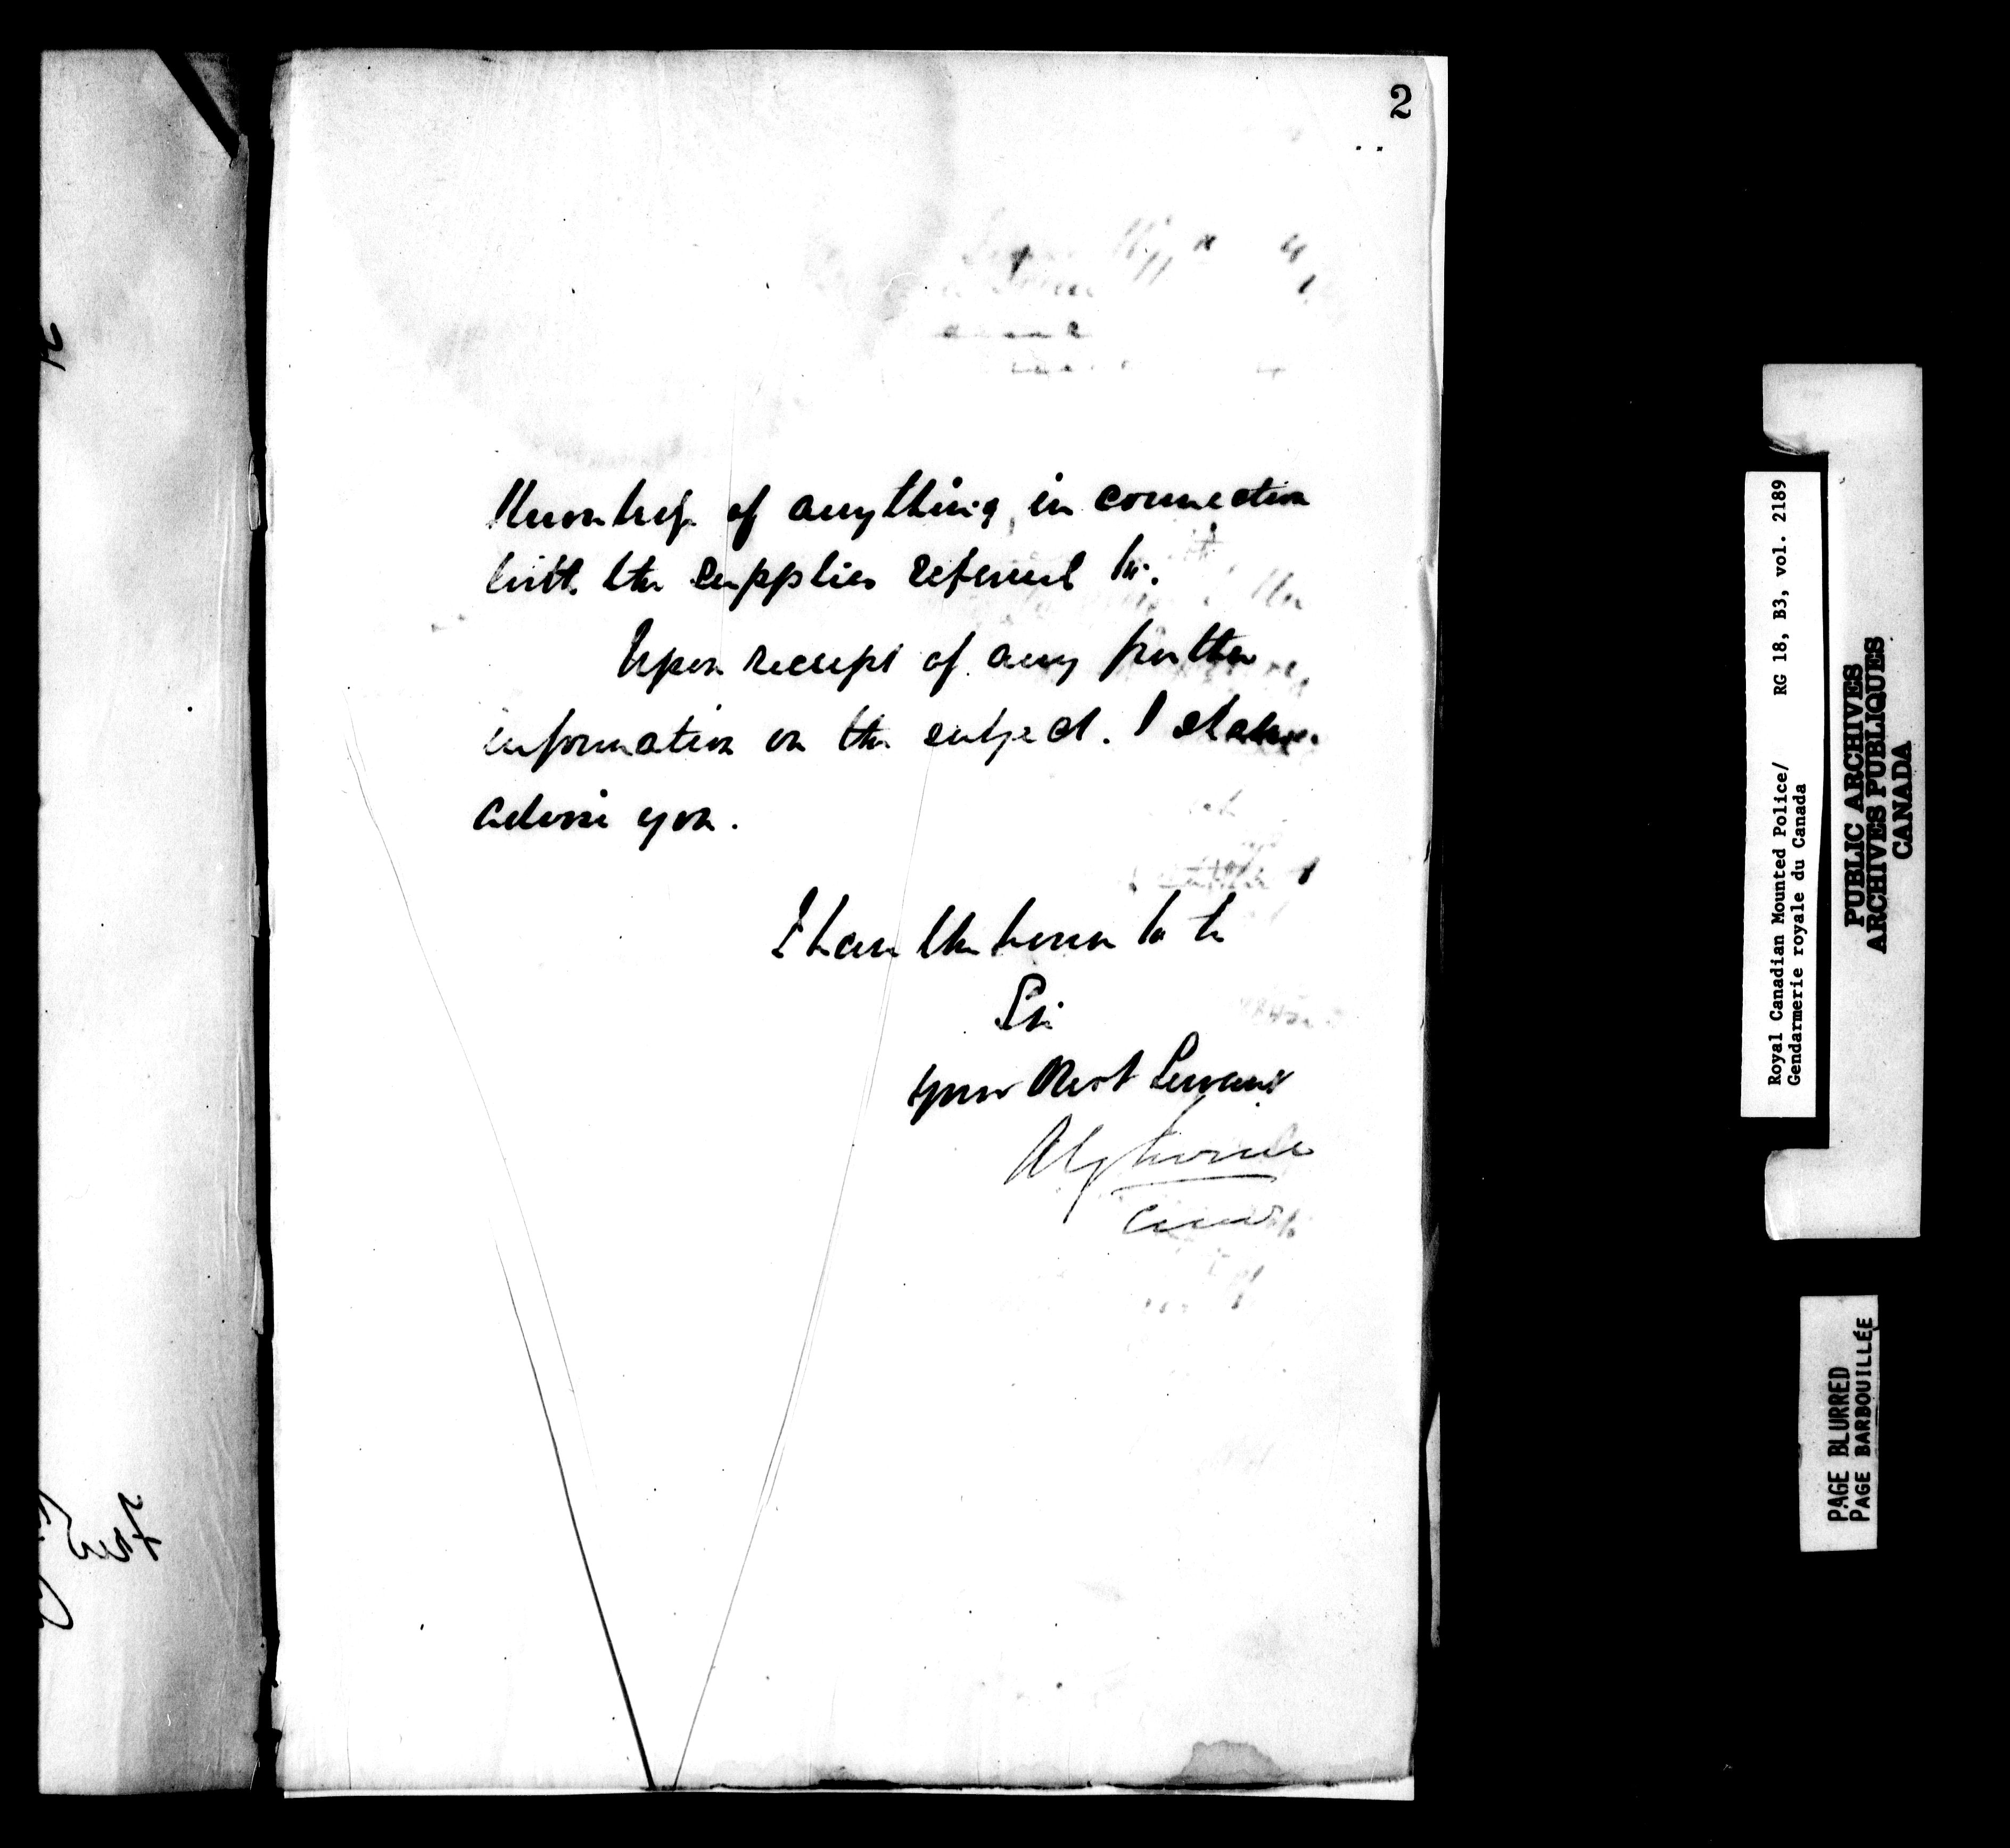 2
Knowledge of anything in connection
with the supplies referred to.
Upon receipt of any further
information on the subject. I shall
advise you.
I have the honor to be
Sir
your Obed Servant
Royal Canadian Mounted Police/ RG 18, B3, vol. 2189
Gendarmerie royale du Canada
PUBLIC ARCHIVES
ARCHIVES PUBLIQUES
CANADA
PAGE BLURRED
PAGE BARBOUILLÉE